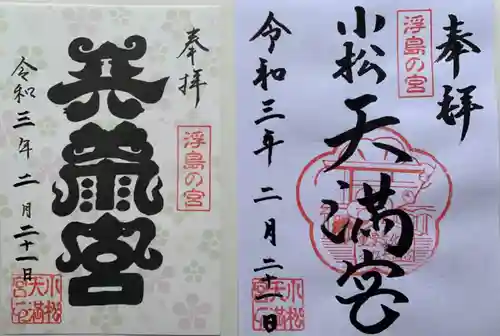 奉拝
浮島の宮
宮
令和三年二月二十一日
小松
天満
宮印
奉拝
浮島の宮
小松
天満宮
令和三年二月二十一日
小松
天満
宮印